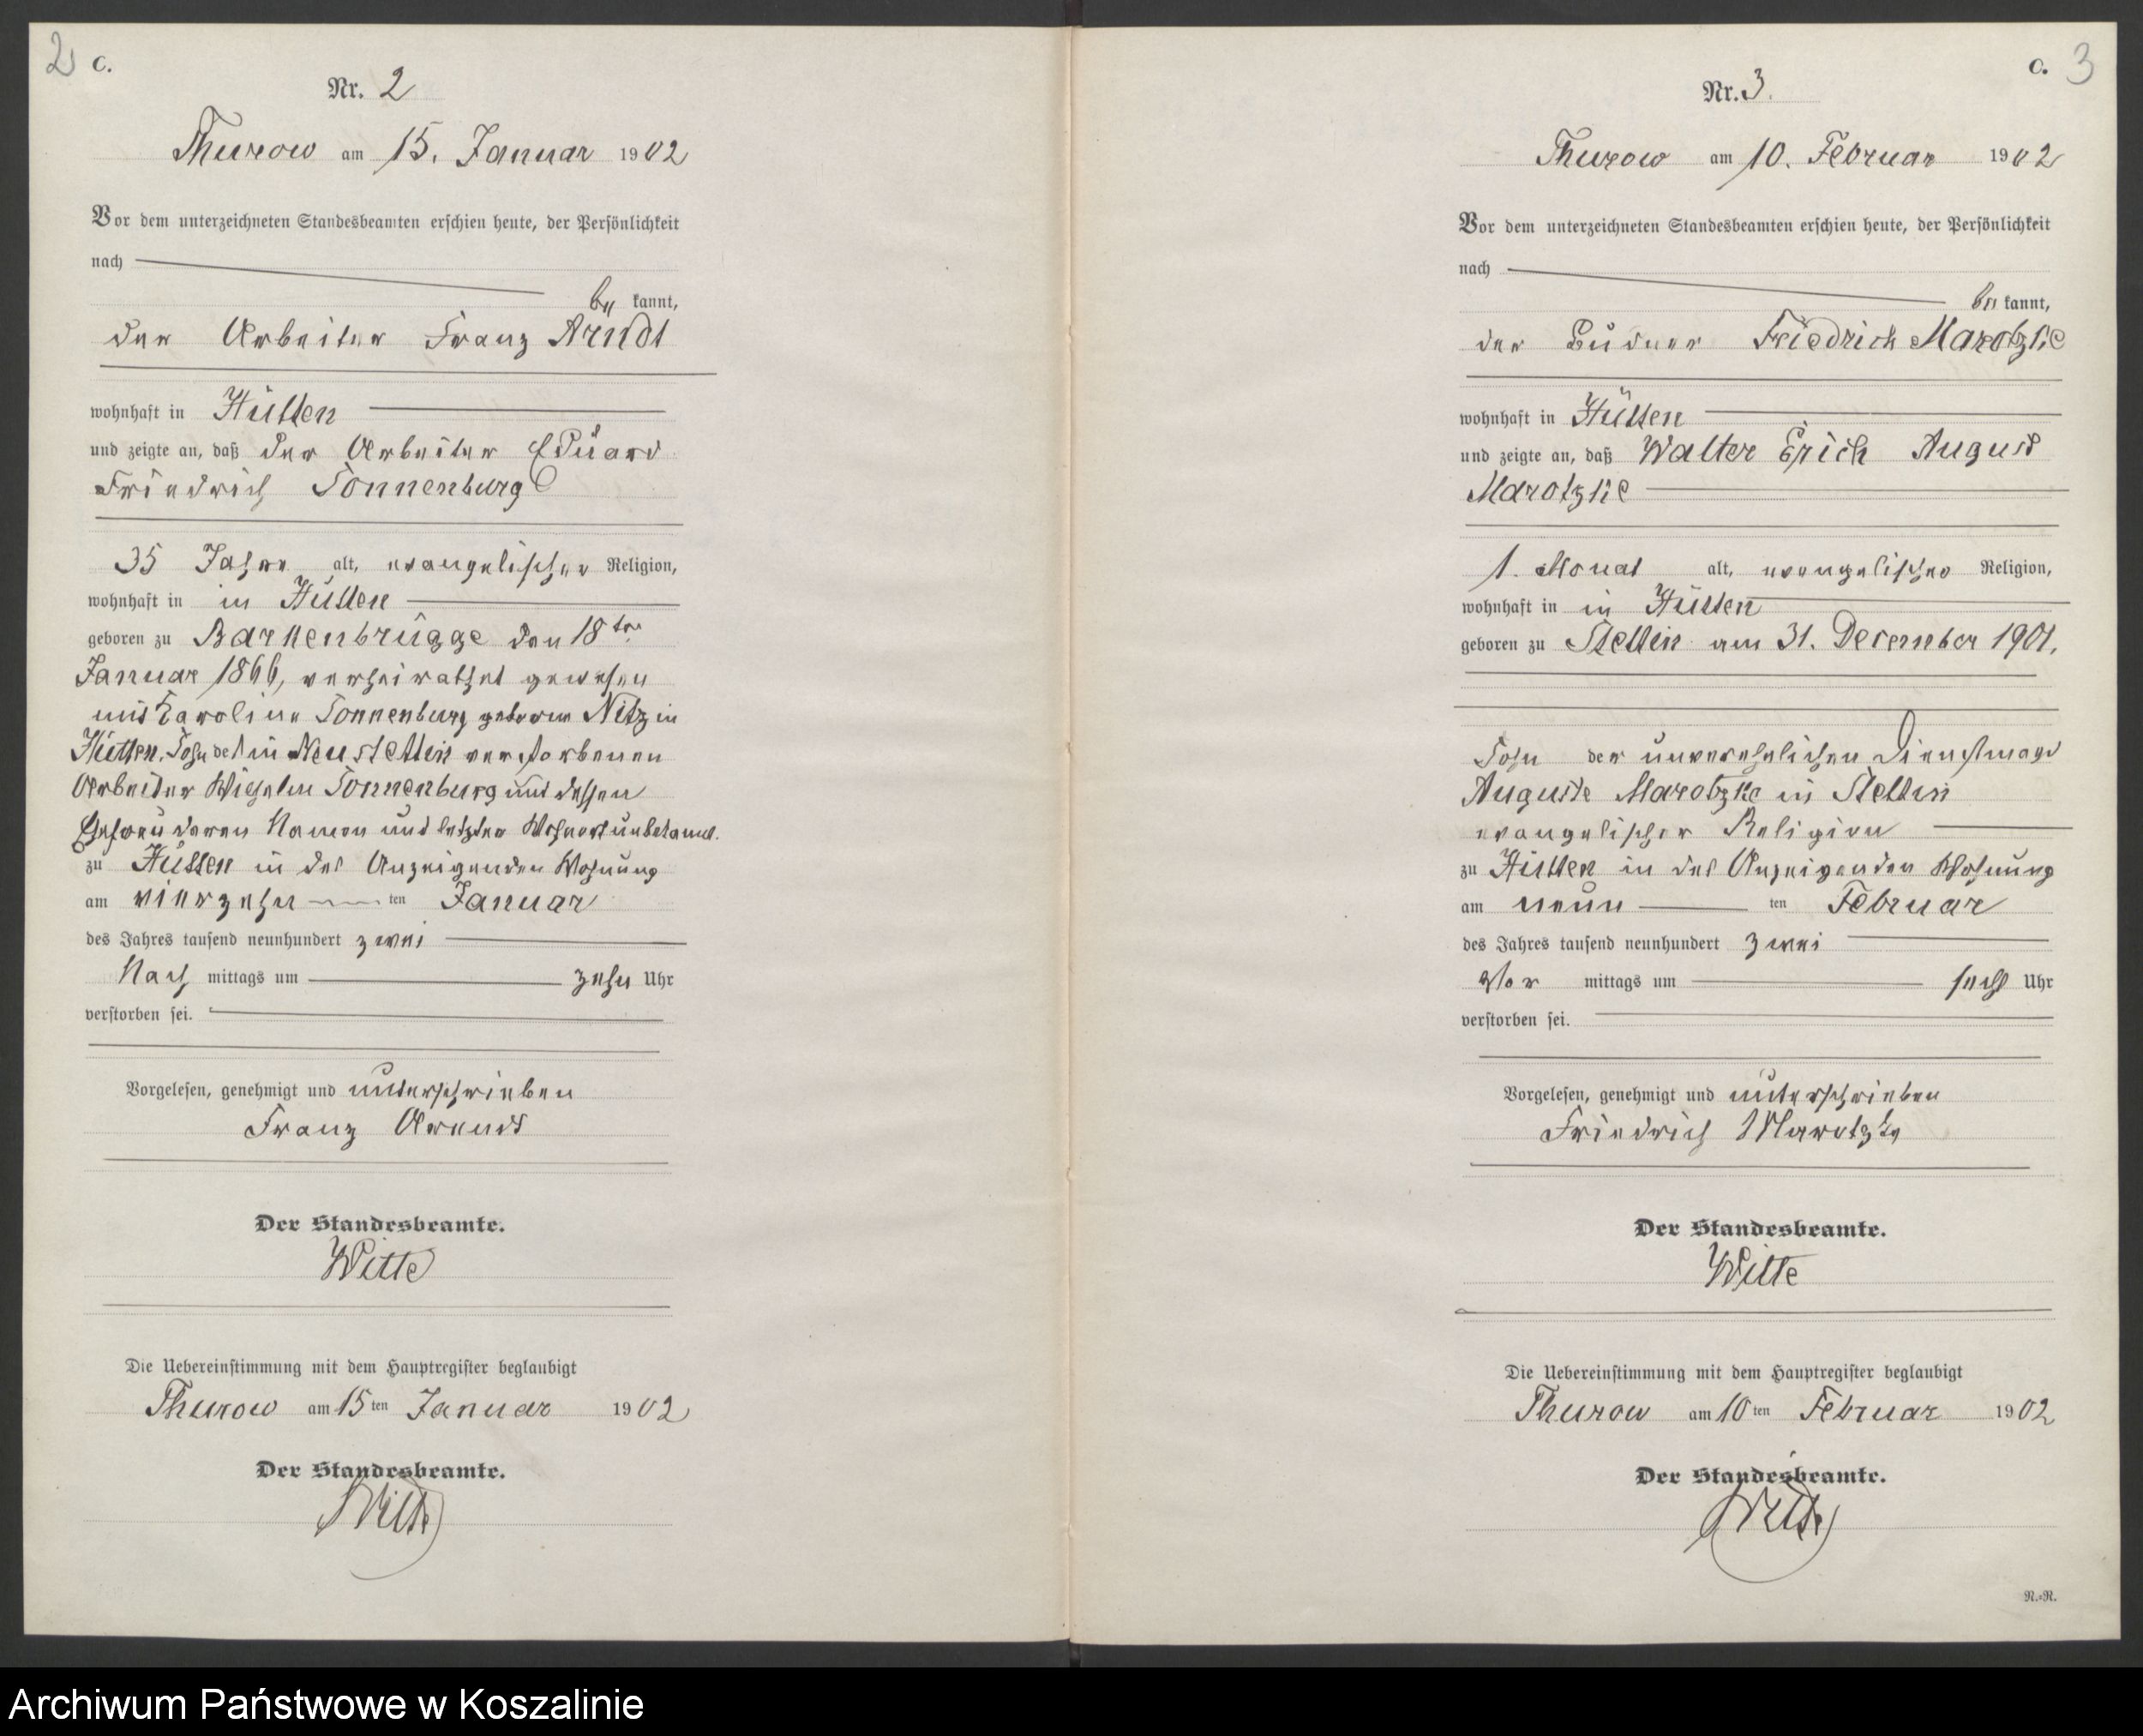 2 C.
Nr. 2
Thurow am 15. Januar 1902
Vor dem unterzeichneten Standesbeamten erschien heute, der Persönlichkeit
nach
be kannt,
der Arbeiter Franz Arndt
wohnhaft in Hütten
und zeigte an, daß der Arbeiter Eduard
Friedrich Sonnenburg
35 Jahre alt, evangelischer Religion,
wohnhaft in in Hütten
geboren zu Barkenbrügge den 18ten
Januar 1866, verheirathet gewesen
mit Karoline Sonnenburg geborne Nitz in
Hütten. Sohn des in Neustettin verstorbenen
Arbeiter Wilhelm Sonnenburg und dessen
Ehefrau deren Namen und letzter Wohnort unbekannt.
zu Hütten in des Anzeigenden Wohnung
am vierzehn ten Januar
des Jahres tausend neunhundert zwei
Nach mittags um zehn Uhr
verstorben sei.
Vorgelesen, genehmigt und unterschrieben
Franz Arendt
Der Standesbeamte.
Witte
Die Uebereinstimmung mit dem Hauptregister beglaubigt
Thurow am 15ten Januar 1902
Der Standesbeamte.
Witte
C. 3
Nr. 3.
Thurow am 10. Februar 1902
Vor dem unterzeichneten Standesbeamten erschien heute, der Persönlichkeit
nach
be kannt,
der Büdner Friedrich Marotzke
wohnhaft in Hütten
und zeigte an, daß Walter Erich August
Marotzke
1. Monat alt, evangelischer Religion,
wohnhaft in in Hütten
geboren zu Stettin am 31. December 1901.
Sohn der unverehelichen Dienstmagd
Auguste Marotzke in Stettin
evangelischer Religion
zu Hütten in des Anzeigenden Wohnung
am neun ten Februar
des Jahres tausend neunhundert zwei
Vor mittags um sechs Uhr
verstorben sei.
Vorgelesen, genehmigt und unterschrieben
Friedrich Marotzke
Der Standesbeamte.
Witte
Die Uebereinstimmung mit dem Hauptregister beglaubigt
Thurow am 10ten Februar 1902
Der Standesbeamte.
Witte
N.=R.
Archiwum Państwowe w Koszalinie